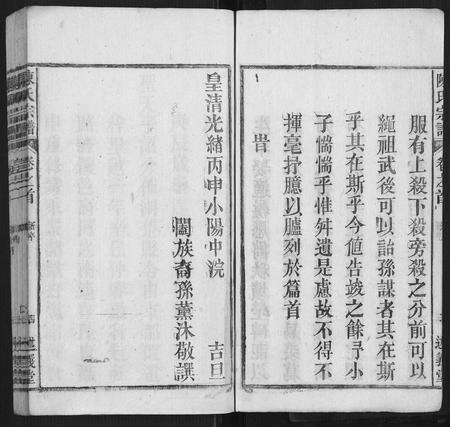 陳氏宗譜
卷之首
服有上殺下殺旁殺之分前可以
繩祖武後可以詒孫謀者其在斯
乎其在斯乎今值告竣之餘予小
子惴惴乎惟舛遺是慮故不得不
揮毫抒臆以臚列於篇首
旹
皇清光緒丙申小陽中浣
吉旦
闔族裔孫薰沐敬譔
陳氏宗譜
卷之首